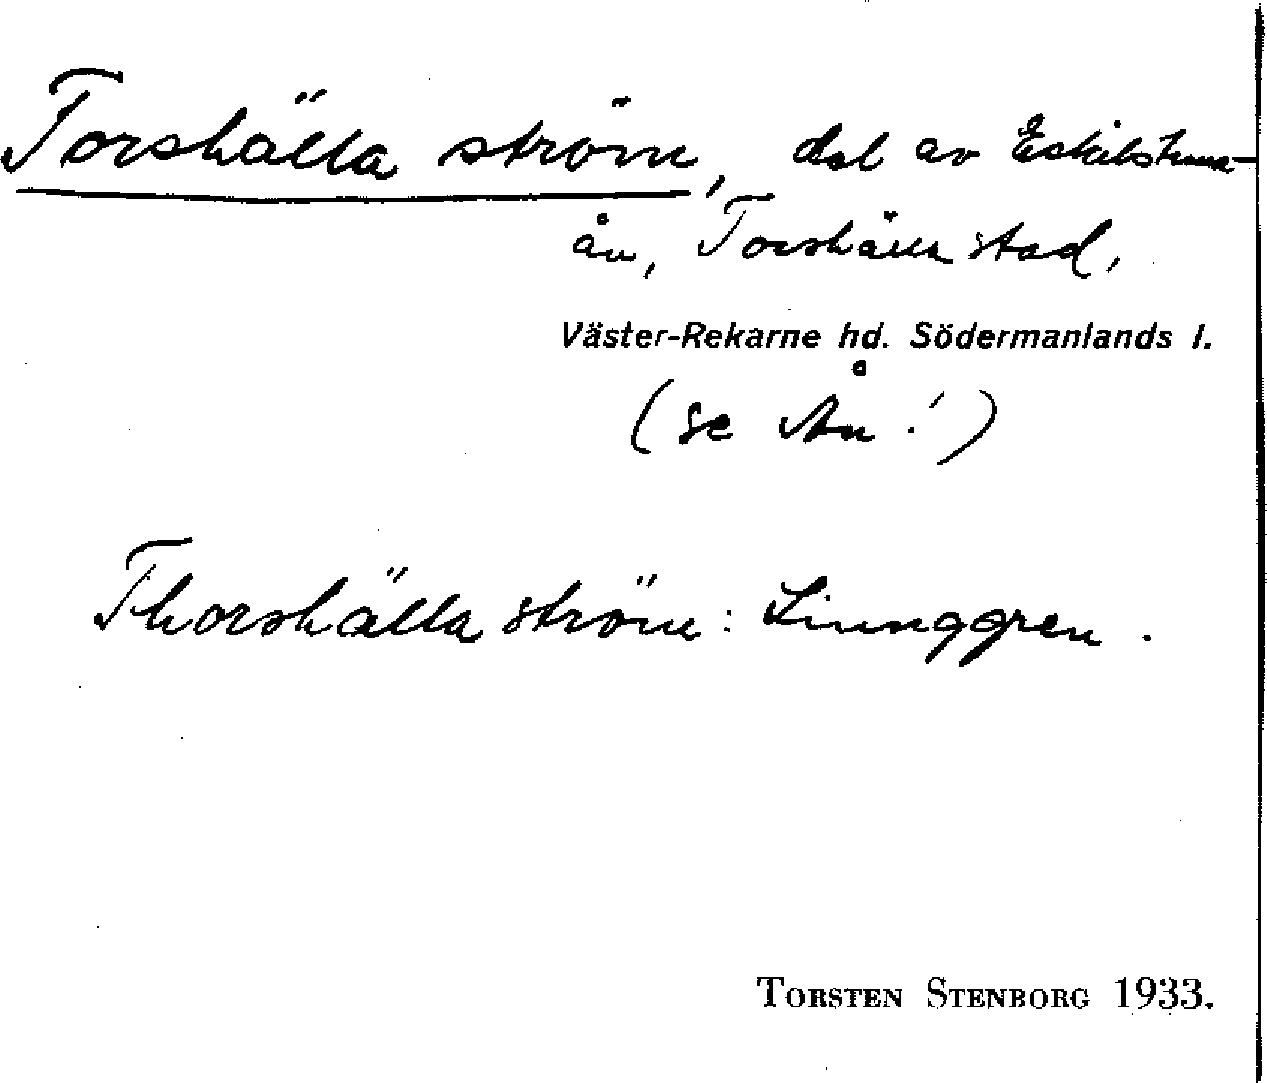 Torshälla ström, del av Eskilstuna-
ån, Torshälla stad,
Väster-Rekarne hd. Södermanlands l.
(se Ån!)
Thorshälla ström: Linnggren.
TORSTEN STENBORG 1933.